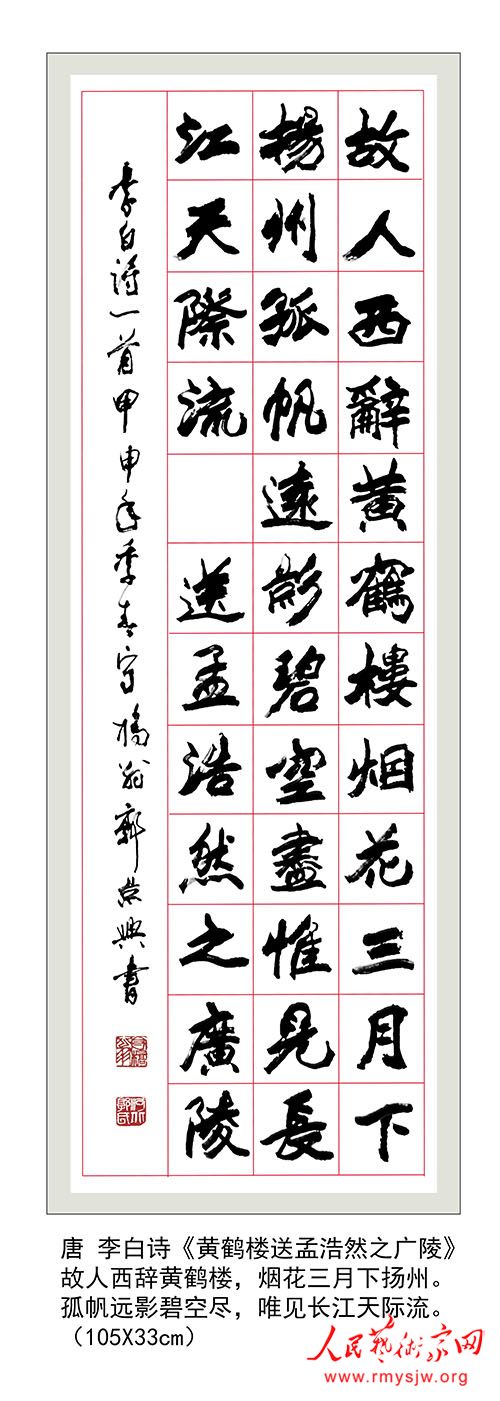 故人西辭黄鶴樓烟花三月下
揚州孤帆遠影碧空盡惟見長
江天際流 送孟浩然之廣陵
李白詩一首甲申年季春守拙翁郭荣興書
唐 李白诗《黄鹤楼送孟浩然之广陵》
故人西辞黄鹤楼，烟花三月下扬州。
孤帆远影碧空尽，唯见长江天际流。
（105X33cm）
人民藝術家网
www.rmysjw.org